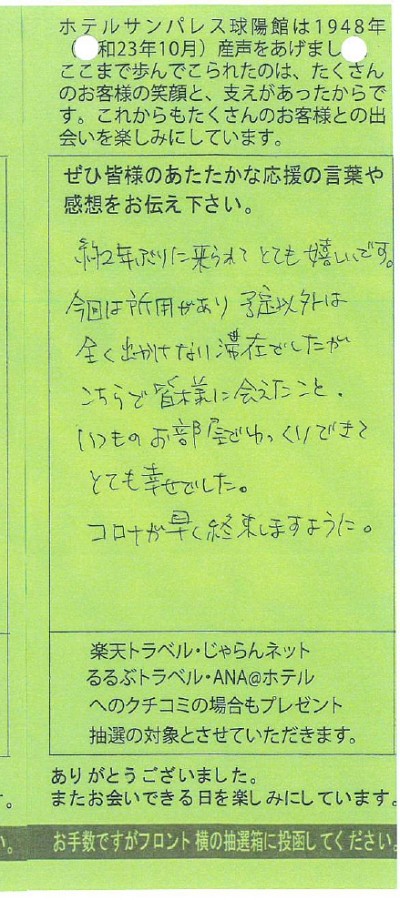 ホテルサンパレス球陽館は1948年
(和23年10月)産声をあげまし
ここまで歩んでこられたのは、たくさん
のお客様の笑顔と、支えがあったからで
す。これからもたくさんのお客様との出
会いを楽しみにしています。
ぜひ皆様のあたたかな応援の言葉や
感想をお伝え下さい。
約2年ぶりに来られてとても嬉しいです。
今回は所用があり 予定以外は
全く出かけない滞在でしたが
こちらで皆様に会えたこと、
いつものお部屋でゆっくりできて
とても幸せでした。
コロナが早く終束しますように。
楽天トラベル・じゃらんネット
るるぶトラベル・ANA@ホテル
へのクチコミの場合もプレゼント
抽選の対象とさせていただきます。
ありがとうございました。
す。またお会いできる日を楽しみにしています。
い。お手数ですがフロント横の抽選箱に投函してください。